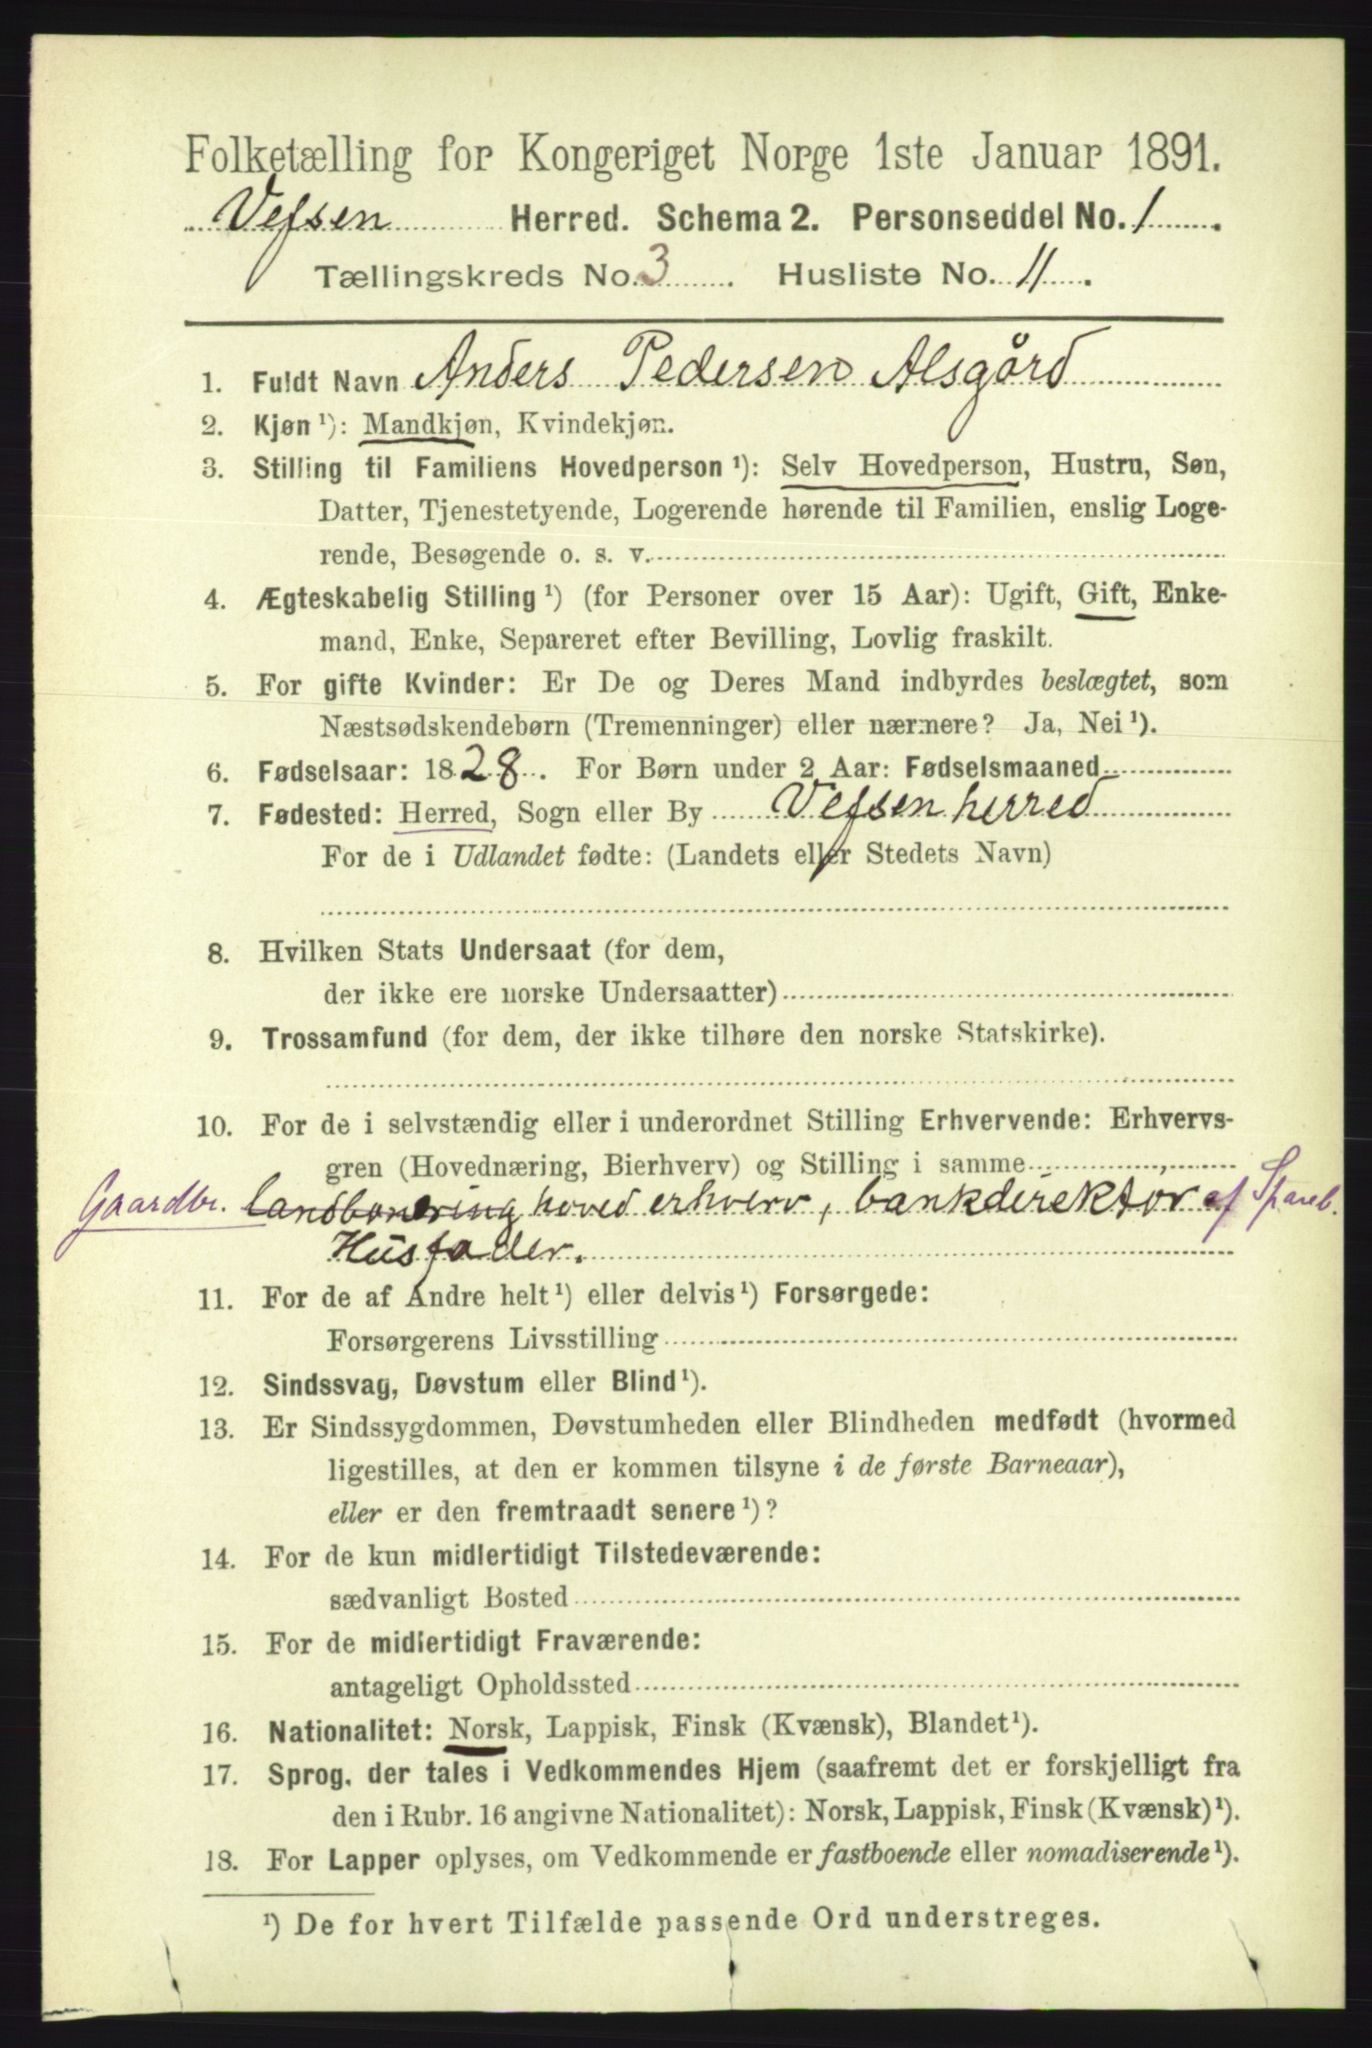 Folketælling for Kongeriget Norge 1ste Januar 1891.
Vefsen Herred. Schema 2. Personseddel No. 1.
Tællingskreds No. 3. Husliste No. 11.
1. Fuldt Navn Anders Pedersen Alsgård
2. Kjøn ¹): Mandkjøn, Kvindekjøn.
3. Stilling til Familiens Hovedperson ¹): Selv Hovedperson, Hustru, Søn,
Datter, Tjenestetyende, Logerende hørende til Familien, enslig Loge-
rende, Besøgende o. s. v.
4. Ægteskabelig Stilling ¹) (for Personer over 15 Aar): Ugift, Gift, Enke-
mand, Enke, Separeret efter Bevilling, Lovlig fraskilt.
5. For gifte Kvinder: Er De og Deres Mand indbyrdes beslægtet, som
Næstsødskendebørn (Tremenninger) eller nærmere? Ja, Nei ¹).
6. Fødselsaar: 1828. For Børn under 2 Aar: Fødselsmaaned
7. Fødested: Herred, Sogn eller By Vefsen herred
For de i Udlandet fødte: (Landets eller Stedets Navn)
8. Hvilken Stats Undersaat (for dem,
der ikke ere norske Undersaatter)
9. Trossamfund (for dem, der ikke tilhøre den norske Statskirke).
10. For de i selvstændig eller i underordnet Stilling Erhvervende: Erhvervs-
gren (Hovednæring, Bierhverv) og Stilling i samme
Gaardbr. hoved erhverv, bankdirektor af Spareb.
Husfader.
11. For de af Andre helt ¹) eller delvis ¹) Forsørgede:
Forsørgerens Livsstilling
12. Sindssvag, Døvstum eller Blind ¹).
13. Er Sindssygdommen, Døvstumheden eller Blindheden medfødt (hvormed
ligestilles, at den er kommen tilsyne i de første Barneaar),
eller er den fremtraadt senere ¹)?
14. For de kun midlertidigt Tilstedeværende:
sædvanligt Bosted
15. For de midlertidigt Fraværende:
antageligt Opholdssted
16. Nationalitet: Norsk, Lappisk, Finsk (Kvænsk), Blandet ¹).
17. Sprog, der tales i Vedkommendes Hjem (saafremt det er forskjelligt fra
den i Rubr. 16 angivne Nationalitet): Norsk, Lappisk, Finsk (Kvænsk) ¹).
18. For Lapper oplyses, om Vedkommende er fastboende eller nomadiserende ¹).
¹) De for hvert Tilfælde passende Ord understreges.